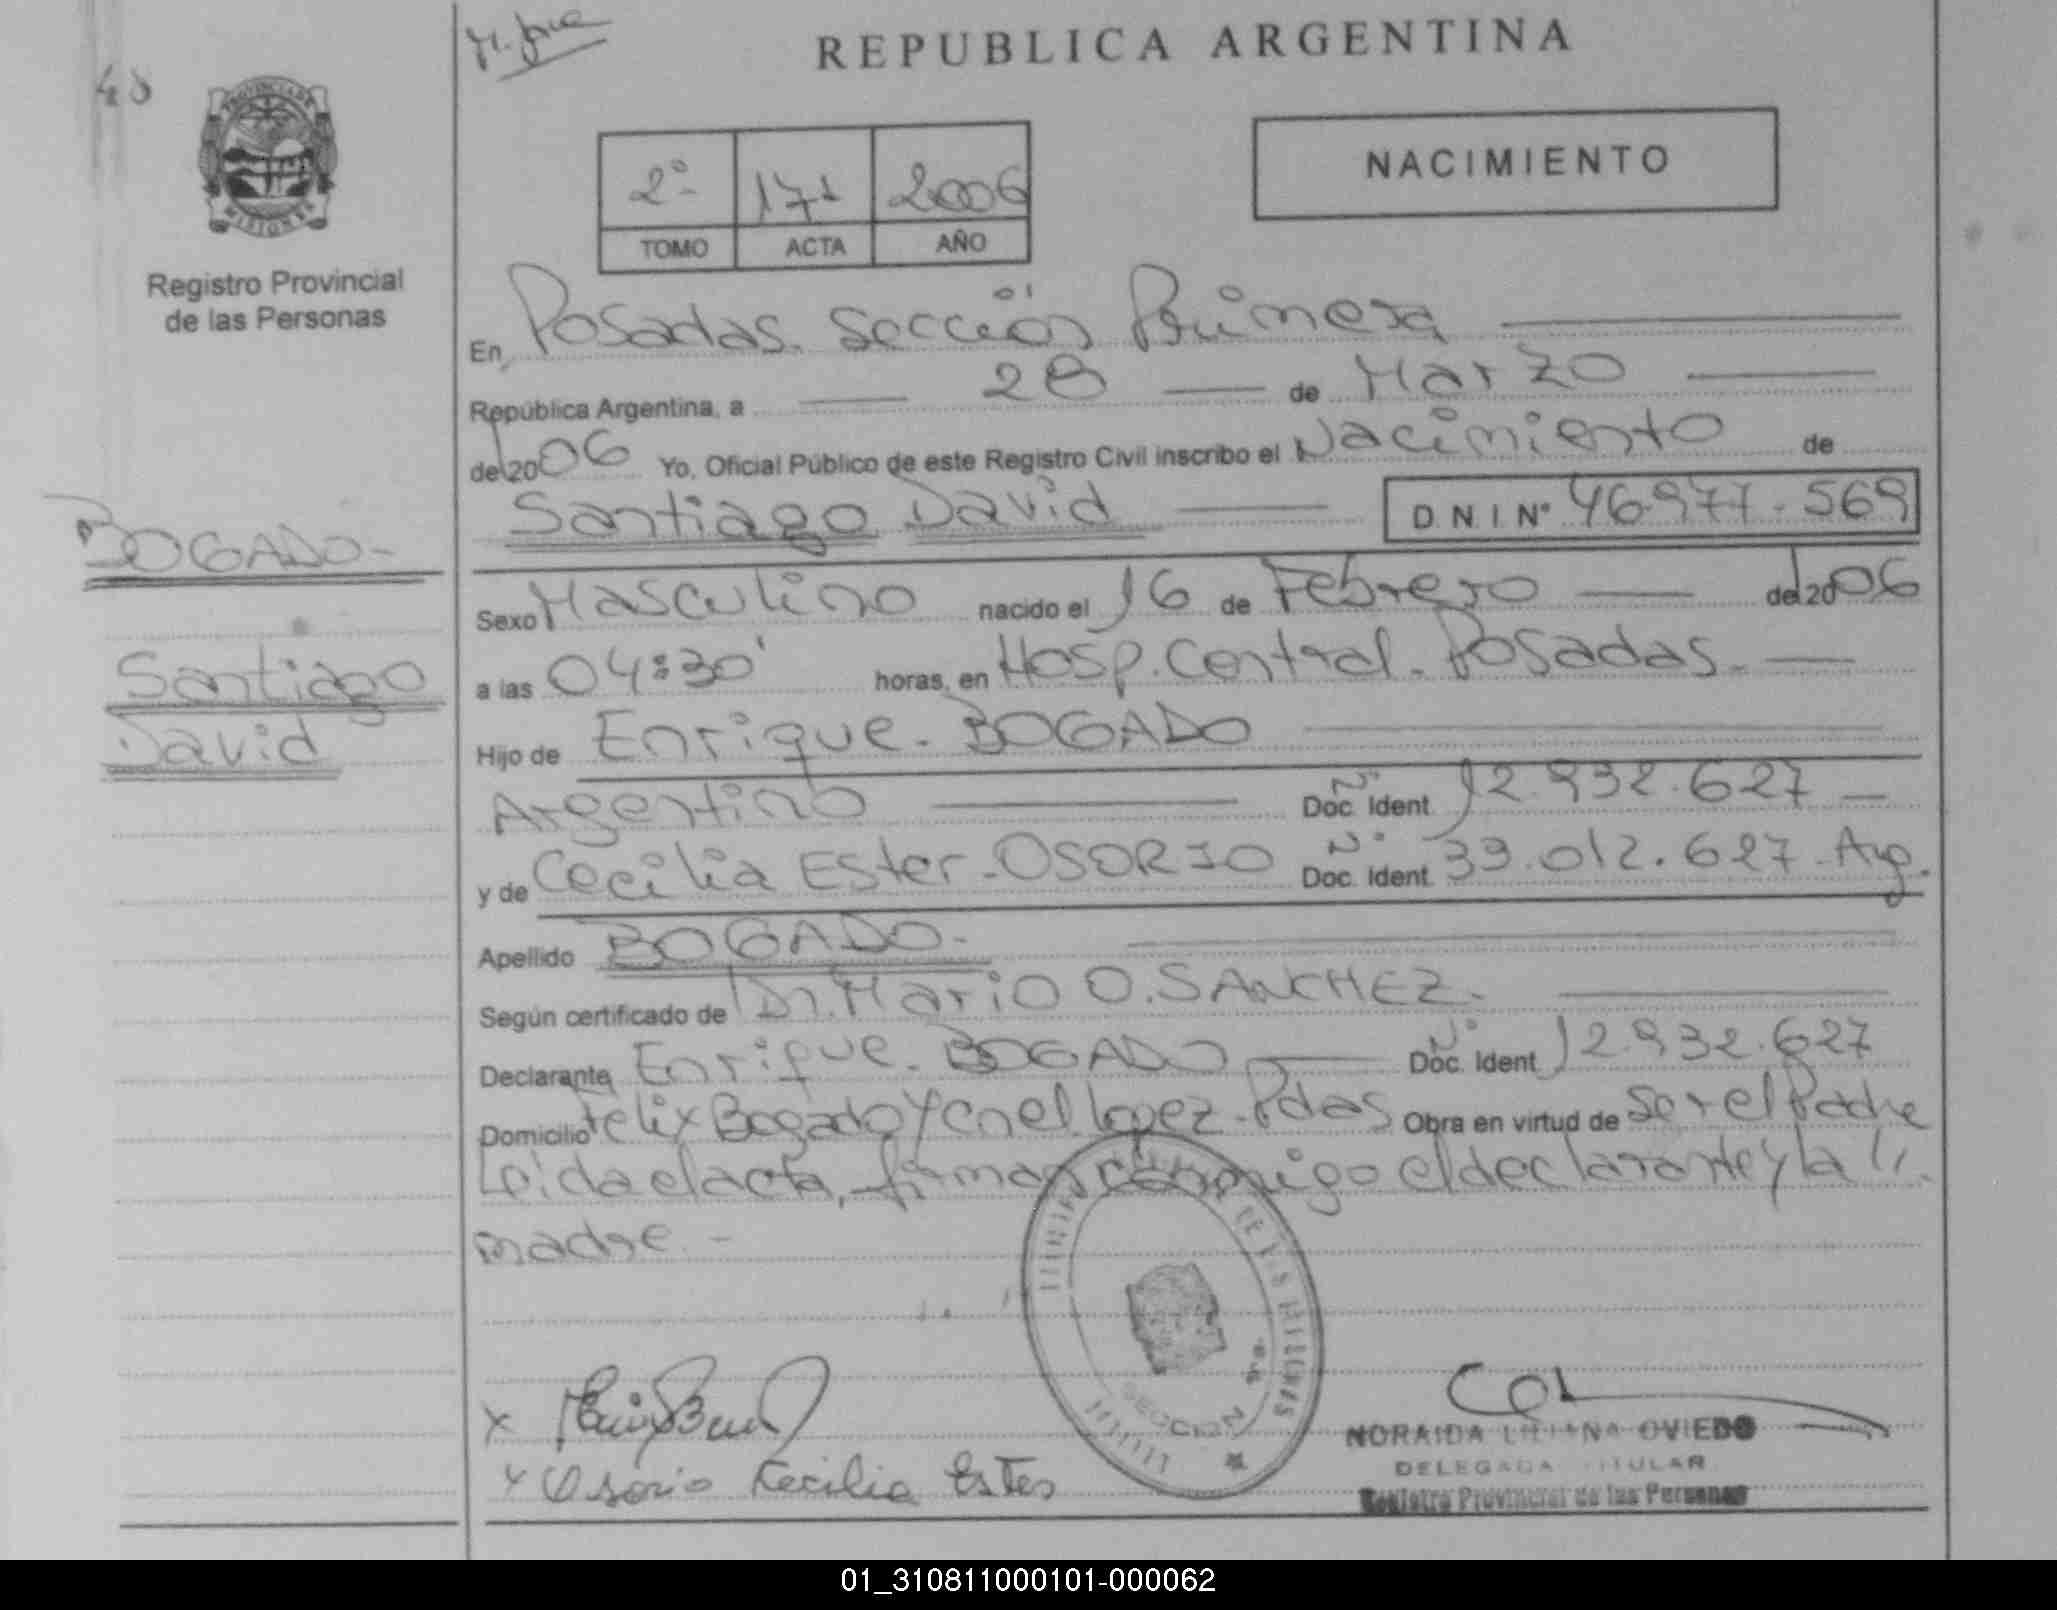 REPUBLICA ARGENTINA
48
PROVINCIA DE
MISIONES
Registro Provincial
de las Personas
NACIMIENTO
2º 171 2006
TOMO ACTA AÑO
En Posadas. Sección Primera
República Argentina, a 28 de Marzo
del 2006 Yo, Oficial Público de este Registro Civil inscribo el Nacimiento de
Santiago David D.N.I.Nº 46.977.569
BOGADO-
Santiago
David
Sexo Masculino nacido el 16 de Febrero del 2006
a las 04:30' horas, en Hosp. Central. Posadas.
Hijo de Enrique. BOGADO
Argentino Nº Doc. Ident. 12.932.627
y de Cecilia Ester. OSORIO Nº Doc. Ident. 39.012.627. Arg.
Apellido BOGADO.
Según certificado de Dr. Mario O. SANCHEZ.
Declarante Enrique. BOGADO Nº Doc. Ident. 12.932.627
Domicilio Felix Bogado y Cnel. Lopez. Pdas Obra en virtud de ser el Padre
Leida el acta, firman conmigo el declarante y la //
madre.-
SECCION
x
x Osorio Cecilia Ester
NORAIDA LILIANA OVIEDO
DELEGADA TITULAR
Registro Provincial de las Personas
01_310811000101-000062